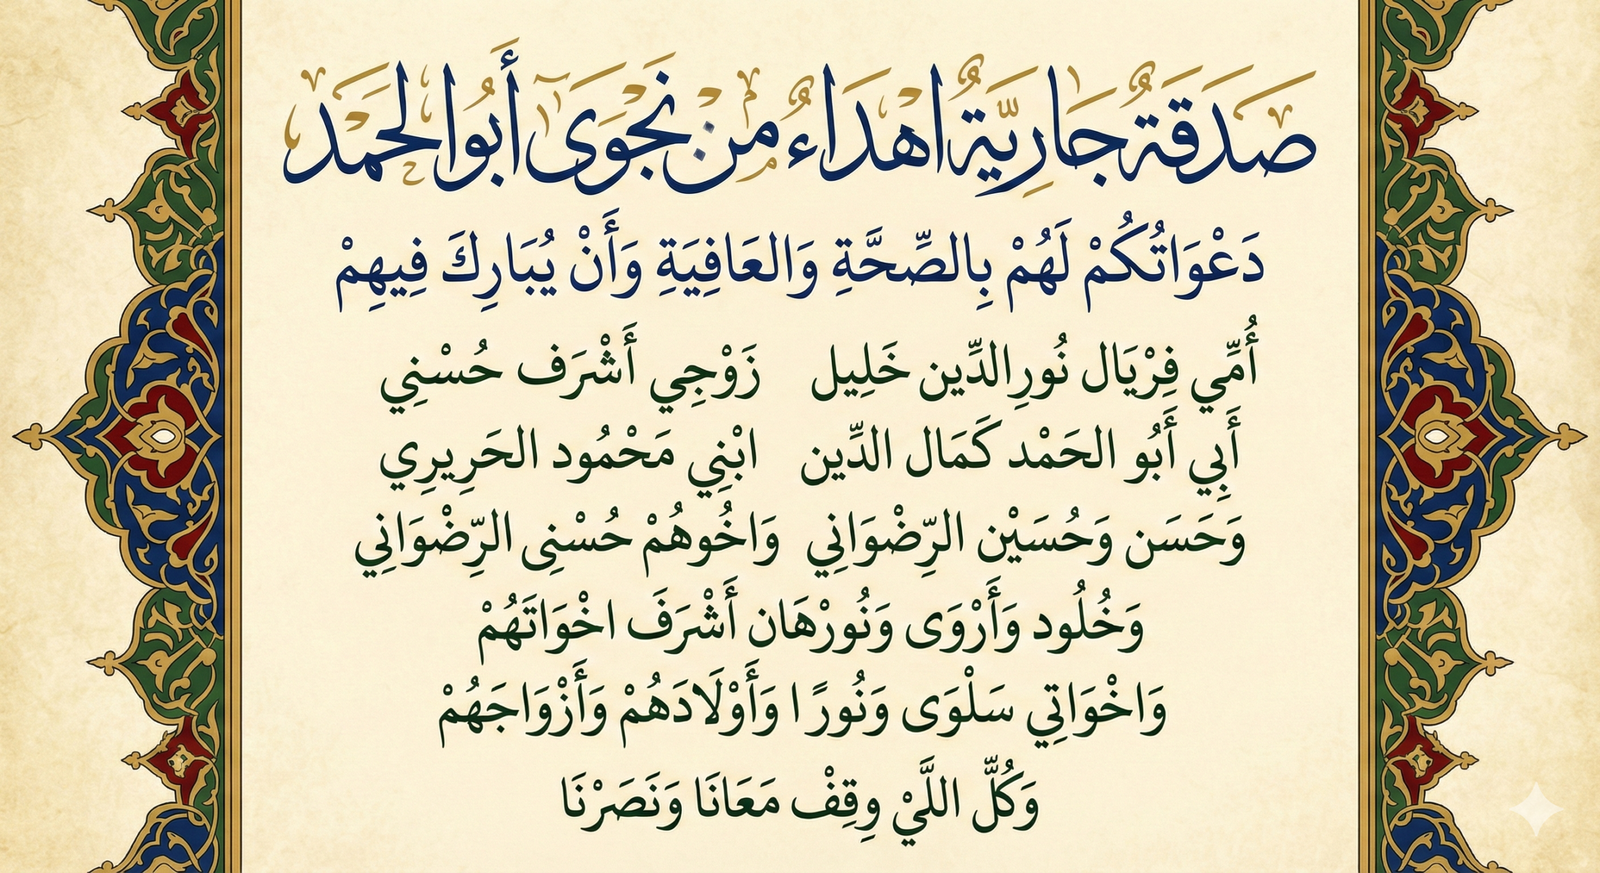 صَدَقَةٌ جَارِيَّةٌ اهْدَاءٌ مِنْ نَجْوَى أَبُوالحَمْد
دَعْوَاتُكُمْ لَهُمْ بِالصِّحَّةِ وَالعَافِيَةِ وَأَنْ يُبَارِكَ فِيهِمْ
أُمِّي فِرْيَال نُورِالدِّين خَلِيل زَوْجِي أَشْرَف حُسْنِي
أَبِي أَبُو الحَمْد كَمَال الدِّين ابْنِي مَحْمُود الحَرِيرِي
وَحَسَن وَحُسَيْن الرِّضْوَانِي وَاخُوهُمْ حُسْنِى الرِّضْوَانِي
وَخُلُود وَأَرْوَى وَنُورْهَان أَشْرَفَ اخْوَاتَهُمْ
وَاخْوَاتِي سَلْوَى وَنُورًا وَأَوْلَادَهُمْ وَأَزْوَاجَهُمْ
وَكُلِّ اللَّيْ وِقِفْ مَعَانَا وَنَصَرْنَا